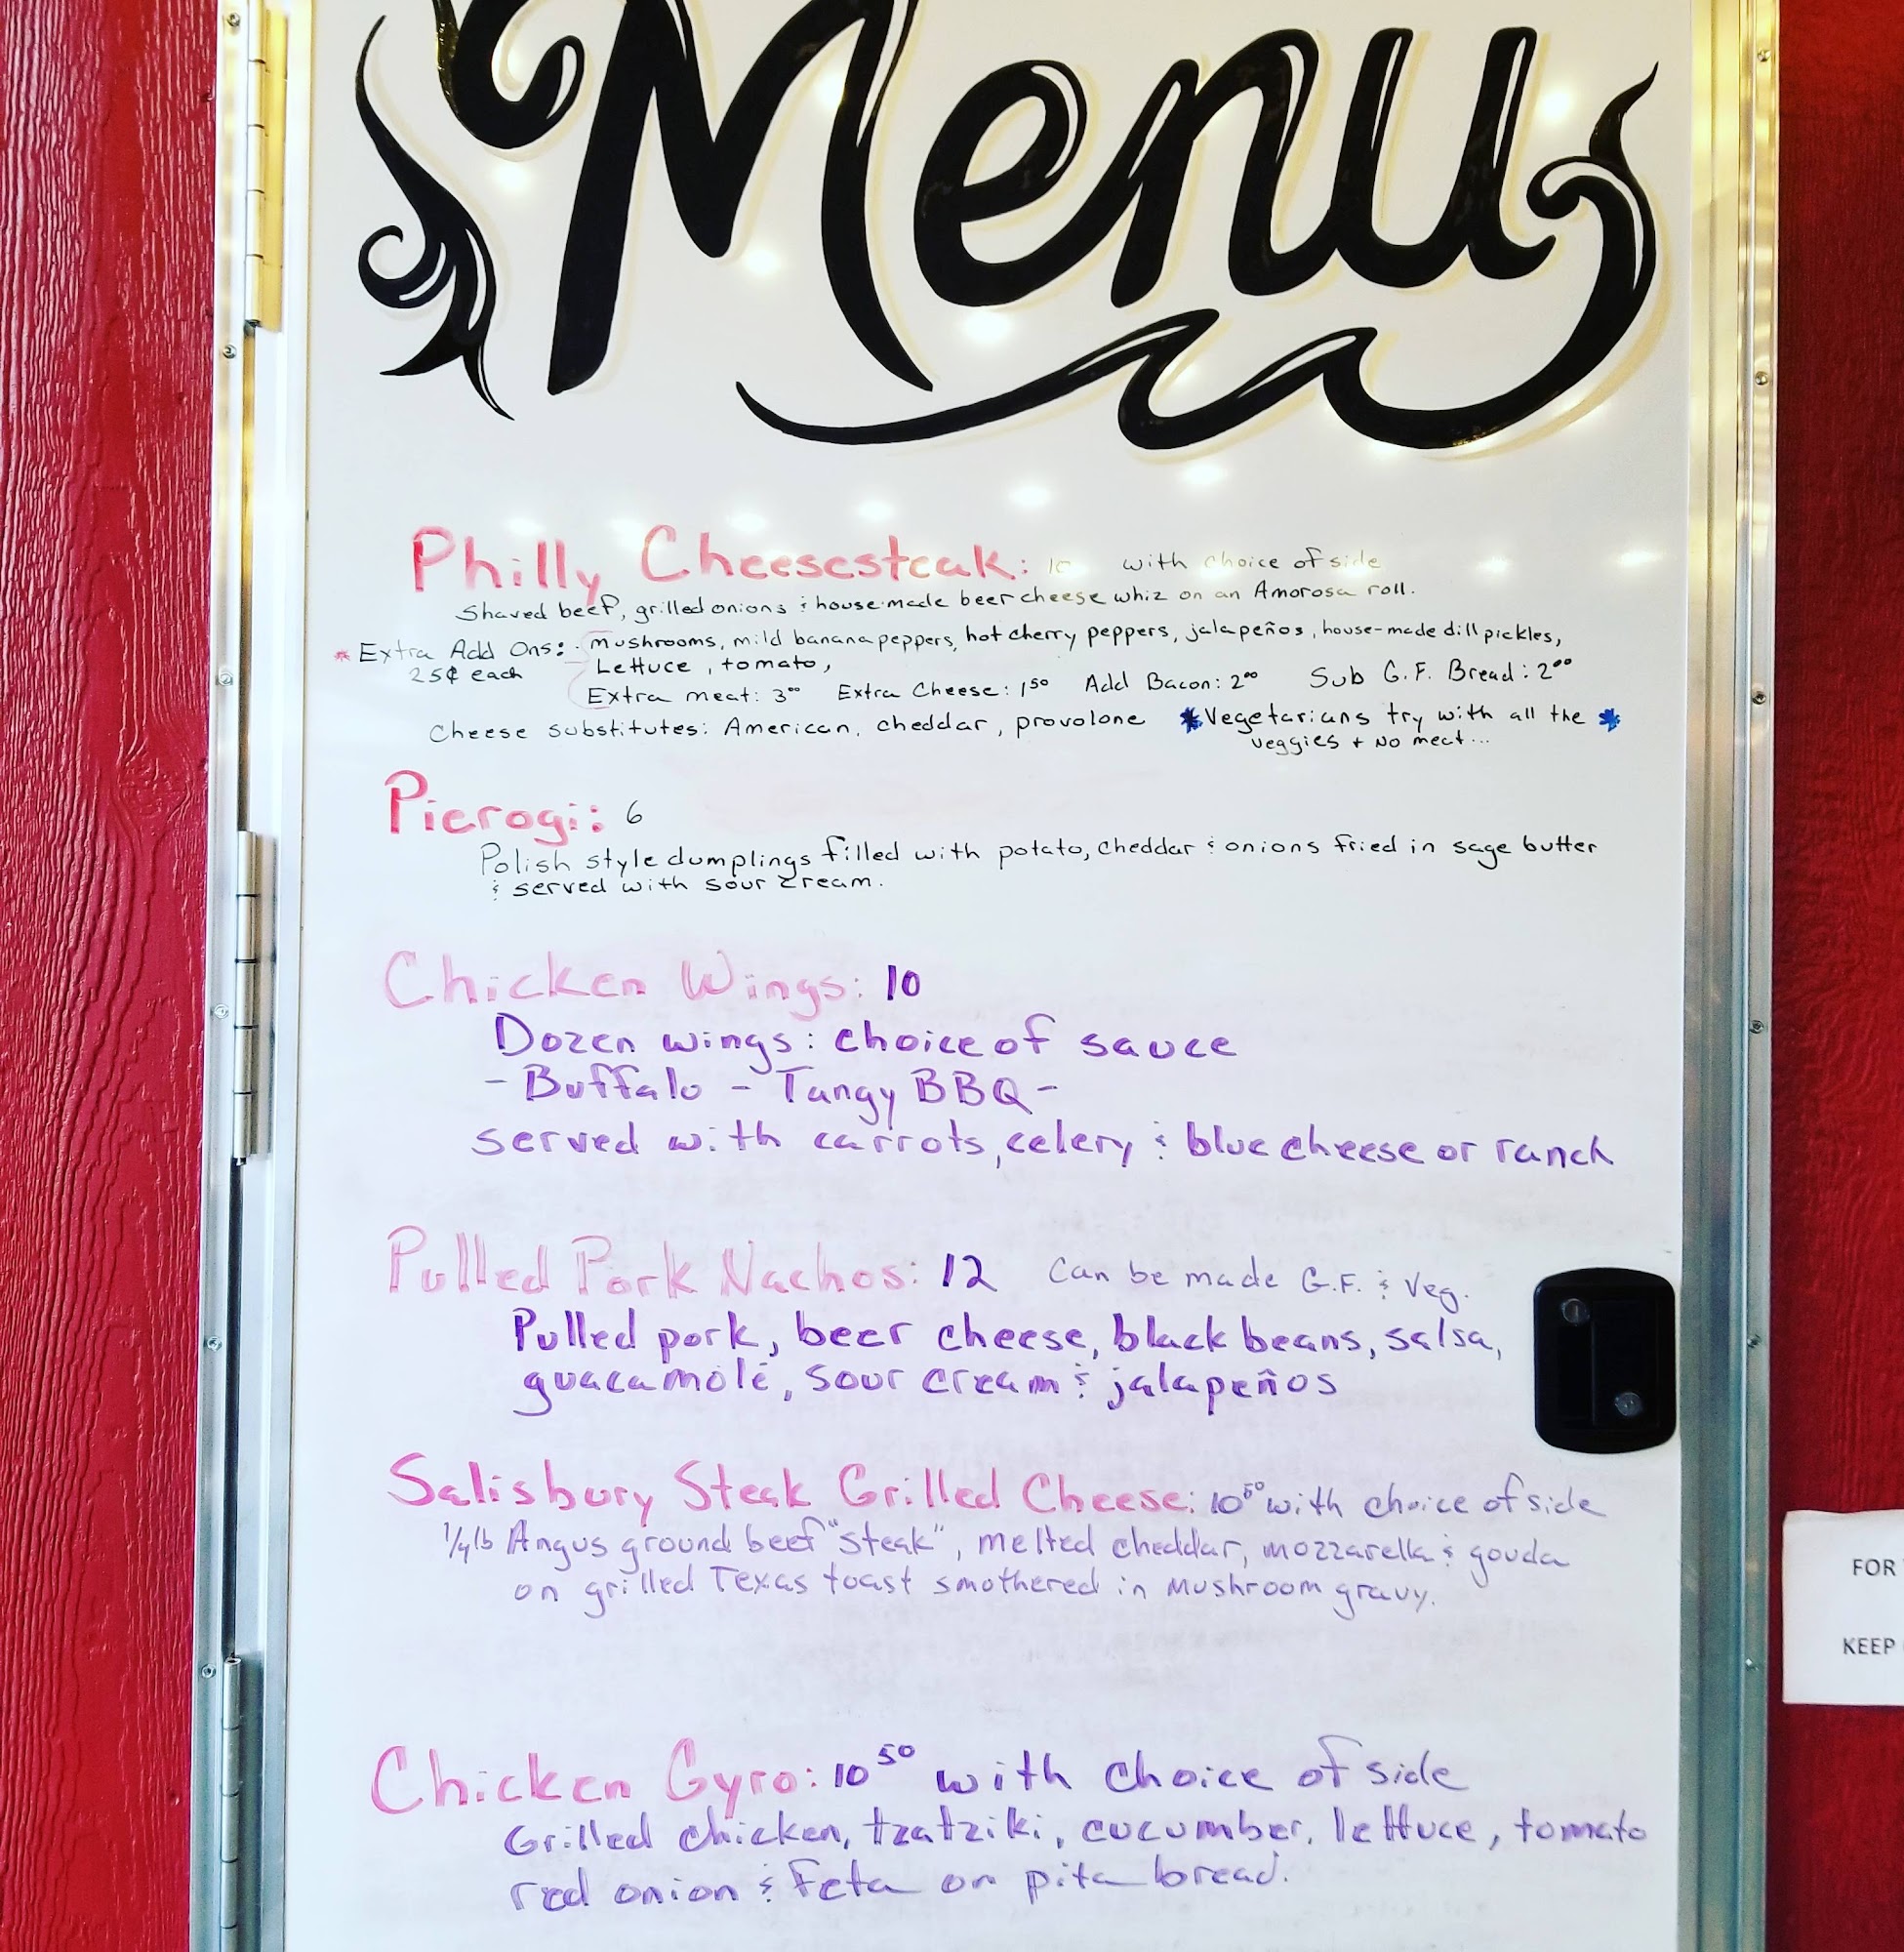 Menu
Philly Cheesesteak: 10 with choice of side
Shaved beef, grilled onions & house made beer cheese whiz on an Amorosa roll.
* Extra Add Ons: mushrooms, mild banana peppers, hot cherry peppers, jalapeños, house-made dill pickles,
25¢ each Lettuce, tomato,
Extra meat: 3⁰⁰ Extra Cheese: 1⁵⁰ Add Bacon: 2⁰⁰ Sub G.F. Bread: 2⁰⁰
Cheese substitutes: American, cheddar, provolone *Vegetarians try with all the *
veggies + No meat...
Pierogi: 6
Polish style dumplings filled with potato, cheddar & onions fried in sage butter
& served with sour cream.
Chicken Wings: 10
Dozen wings: choice of sauce
- Buffalo - Tangy BBQ -
served with carrots, celery & blue cheese or ranch
Pulled Pork Nachos: 12 Can be made G.F. & Veg.
Pulled pork, beer cheese, black beans, salsa,
guacamolé, sour cream & jalapeños
Salisbury Steak Grilled Cheese: 10⁵⁰ with choice of side
1/4 lb Angus ground beef "steak", melted cheddar, mozzarella & gouda
on grilled Texas toast smothered in Mushroom gravy.
FOR
KEEP
Chicken Gyro: 10⁵⁰ with choice of side
Grilled chicken, tzatziki, cucumber, lettuce, tomato
red onion & feta on pita bread.